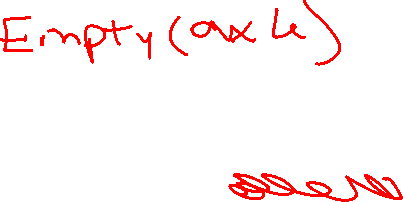 Empty (axle)